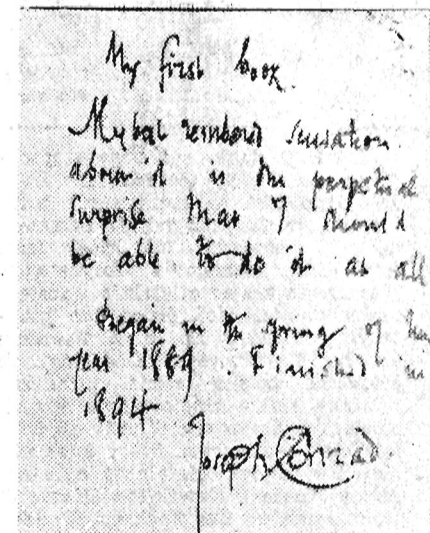 My first book.
My best remembered sensation
about it is the perpetual
surprise that I should
be able to do it at all
Began in the spring of the
year 1889. Finished in
1894
Joseph Conrad.